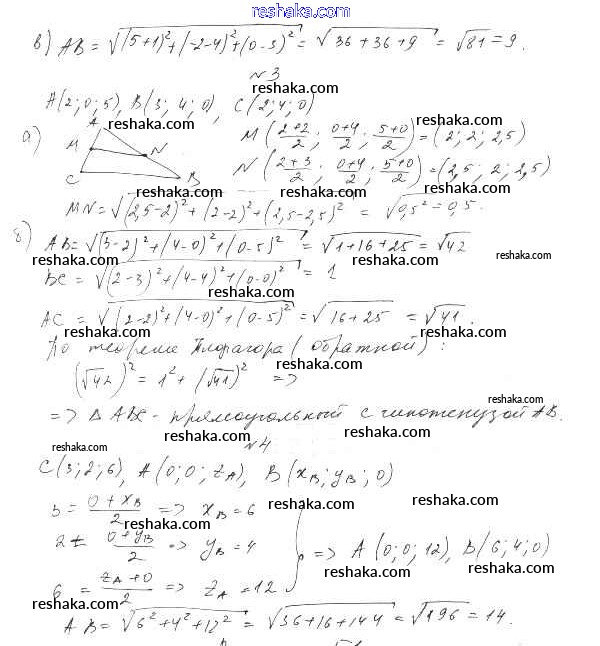 reshaka.com
в) AB = √((5+1)² + (-2-4)² + (0-3)²) = √(36+36+9) = √81 = 9.
№3
A(2; 0; 5), B(3; 4; 0), C(2; 4; 0)
reshaka.com reshaka.com
а) A M N C B M((2+2)/2; (0+4)/2; (5+0)/2) = (2; 2; 2,5)
reshaka.com
N((2+3)/2; (0+4)/2; (5+0)/2) = (2,5; 2; 2,5)
reshaka.com reshaka.com
MN = √((2,5-2)² + (2-2)² + (2,5-2,5)²) = √0,5² = 0,5.
reshaka.com
б) AB = √((3-2)² + (4-0)² + (0-5)²) = √(1+16+25) = √42
reshaka.com reshaka.com
BC = √((2-3)² + (4-4)² + (0-0)²) = 1
reshaka.com
AC = √((2-2)² + (4-0)² + (0-5)²) = √(16+25) = √41.
reshaka.com reshaka.com
По теореме Пифагора (обратной):
reshaka.com
(√42)² = 1² + (√41)² =>
reshaka.com reshaka.com
=> Δ ABC - прямоугольный с гипотенузой AB.
reshaka.com №4 reshaka.com
C(3; 2; 6), A(0; 0; z_A), B(x_B; y_B; 0)
reshaka.com
3 = (0+x_B)/2 => x_B = 6
reshaka.com reshaka.com
2 = (0+y_B)/2 => y_B = 4
reshaka.com
=> A(0; 0; 12), B(6; 4; 0)
reshaka.com
6 = (z_A+0)/2 => z_A = 12
reshaka.com reshaka.com
AB = √(6²+4²+12²) = √(36+16+144) = √196 = 14.
reshaka.com